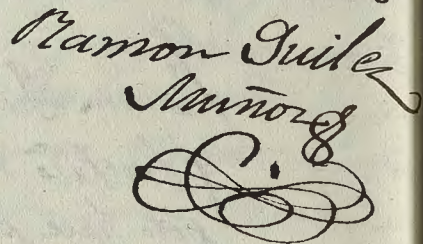 Ramon Guilez
Muñoz